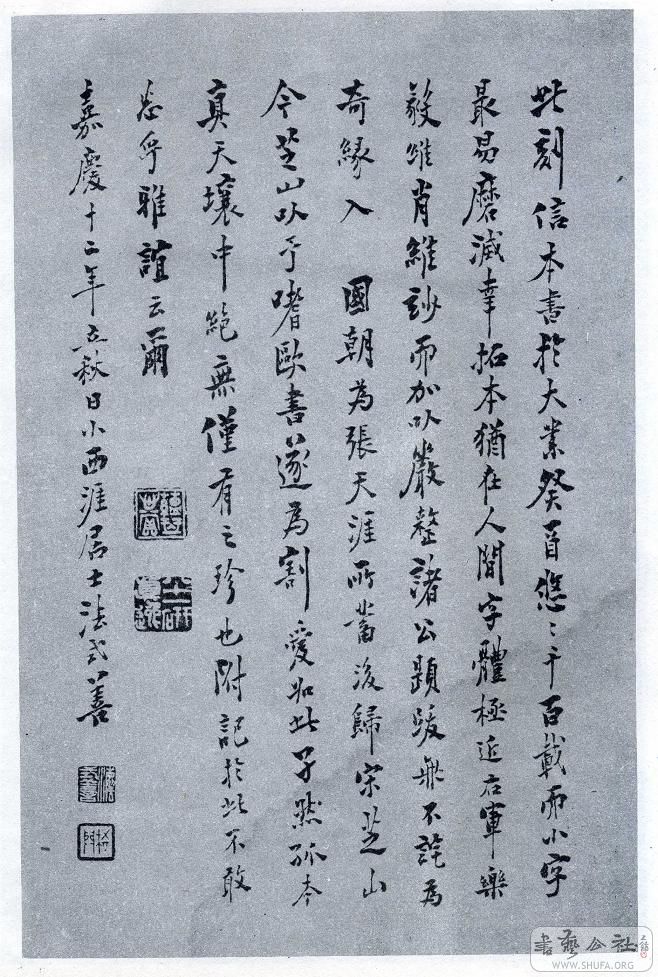 此刻信本書於大業癸酉悠〻千百載而小字
最易磨滅幸拓本猶在人間字體極近右軍樂
毅雖肖雖玅而加以嚴整諸公題跋無不詫為
奇緣入 國朝為張天涯所蓄後歸宋芝山
今芝山以予嗜歐書遂為割愛如此孑然孤本
真天壤中絕無僅有之珍也附記於此不敢
忘乎雅誼云爾
嘉慶十二年立秋日小西涯居士法式善
書藝公社
WWW.SHUFA.ORG